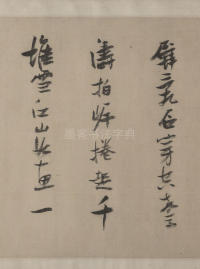 壁云乱石穿空惊
涛拍岸捲起千
堆雪江山如画一
墨客书法字典